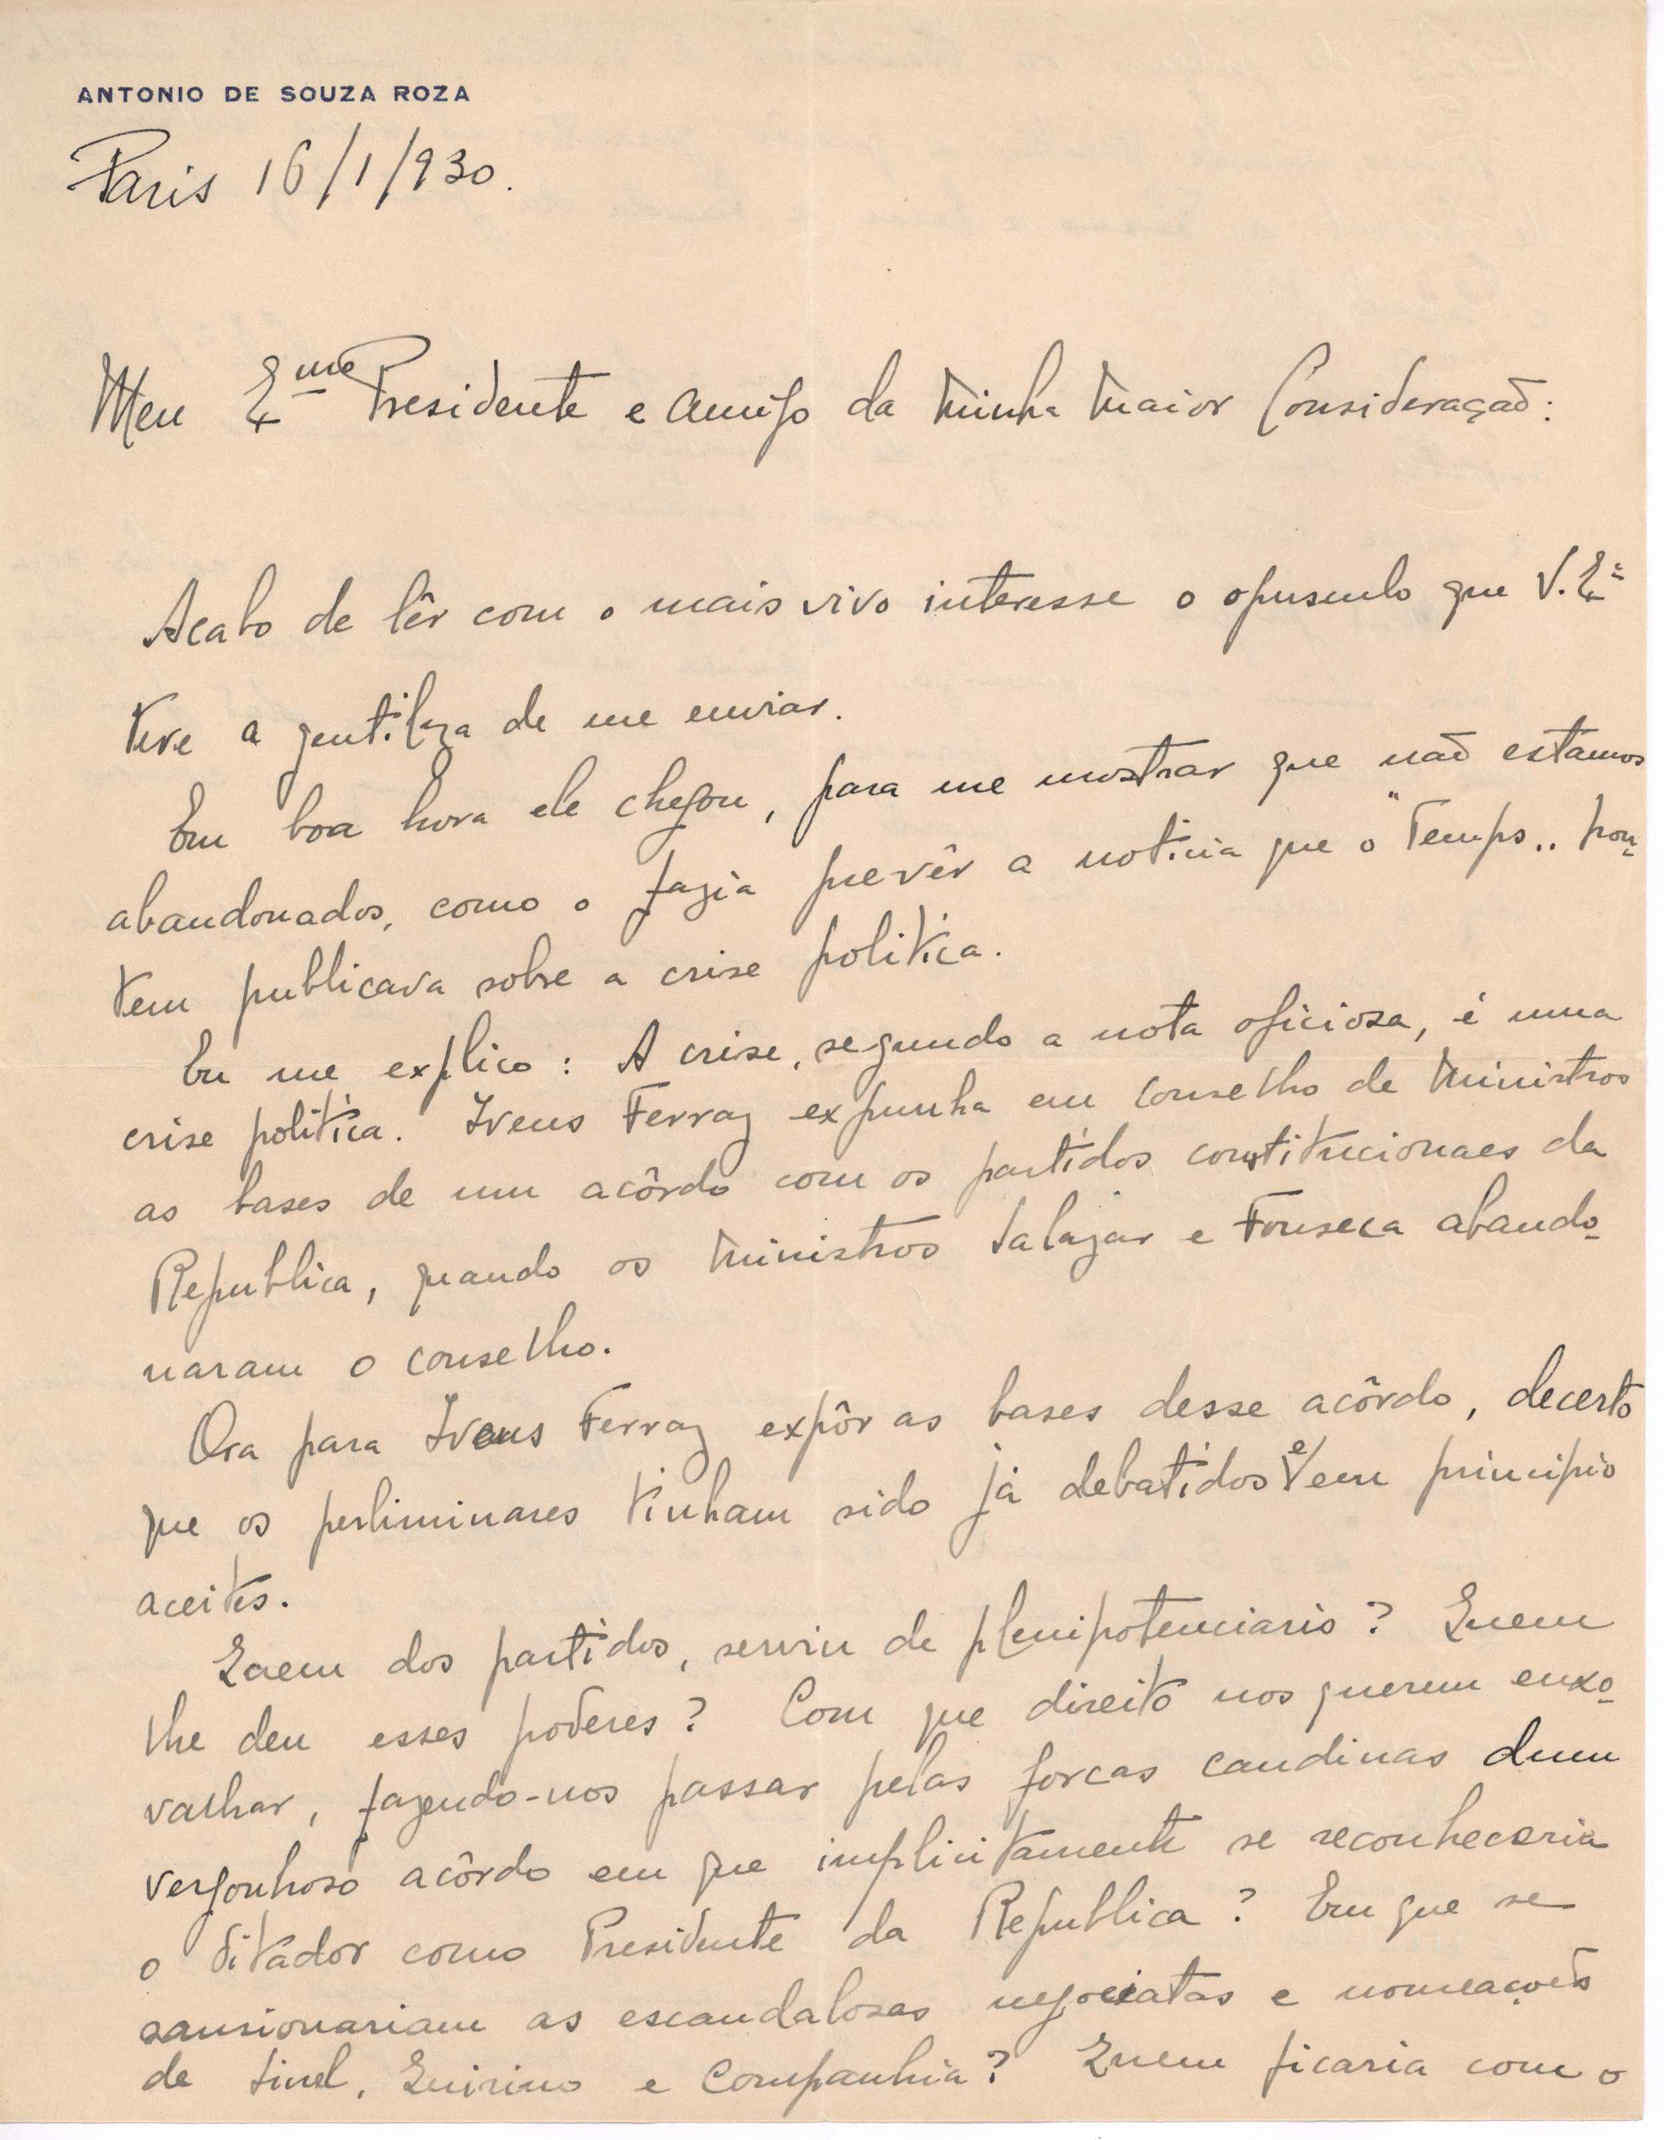 ANTONIO DE SOUZA ROZA
Paris 16/1/930.
Meu Exmo Presidente e Amigo da Minha Maior Consideração:
Acabo de lêr com o mais vivo interesse o opusculo que V. Exª
teve a gentileza de me enviar.
Em boa hora ele chegou, para me mostrar que não estamos
abandonados, como o fazia prevêr a noticia que o "Temps" hon-
tem publicava sobre a crise politica.
Eu me explico: A crise, segundo a nota oficiosa, é uma
crise politica. Ivens Ferraz expunha em conselho de Ministros
as bases de um acôrdo com os partidos constitucionaes da
Republica, quando os Ministros Salazar e Fonseca abando-
naram o conselho.
Ora para Ivens Ferraz expôr as bases desse acôrdo, decerto
que os perliminares tinham sido já debatidos e em principio
aceites.
Quem dos partidos, serviu de plenipotenciario? Quem
lhe deu esses poderes? Com que direito nos querem enxo-
valhar, fazendo-nos passar pelas forcas caudinas dum
vergonhoso acôrdo em que implicitamente se reconheceria
o Ditador como Presidente da Republica? Em que se
sansionariam as escandalosas negociatas e nomeações
de Sinel, Quirino e Companhia? Quem ficaria com o